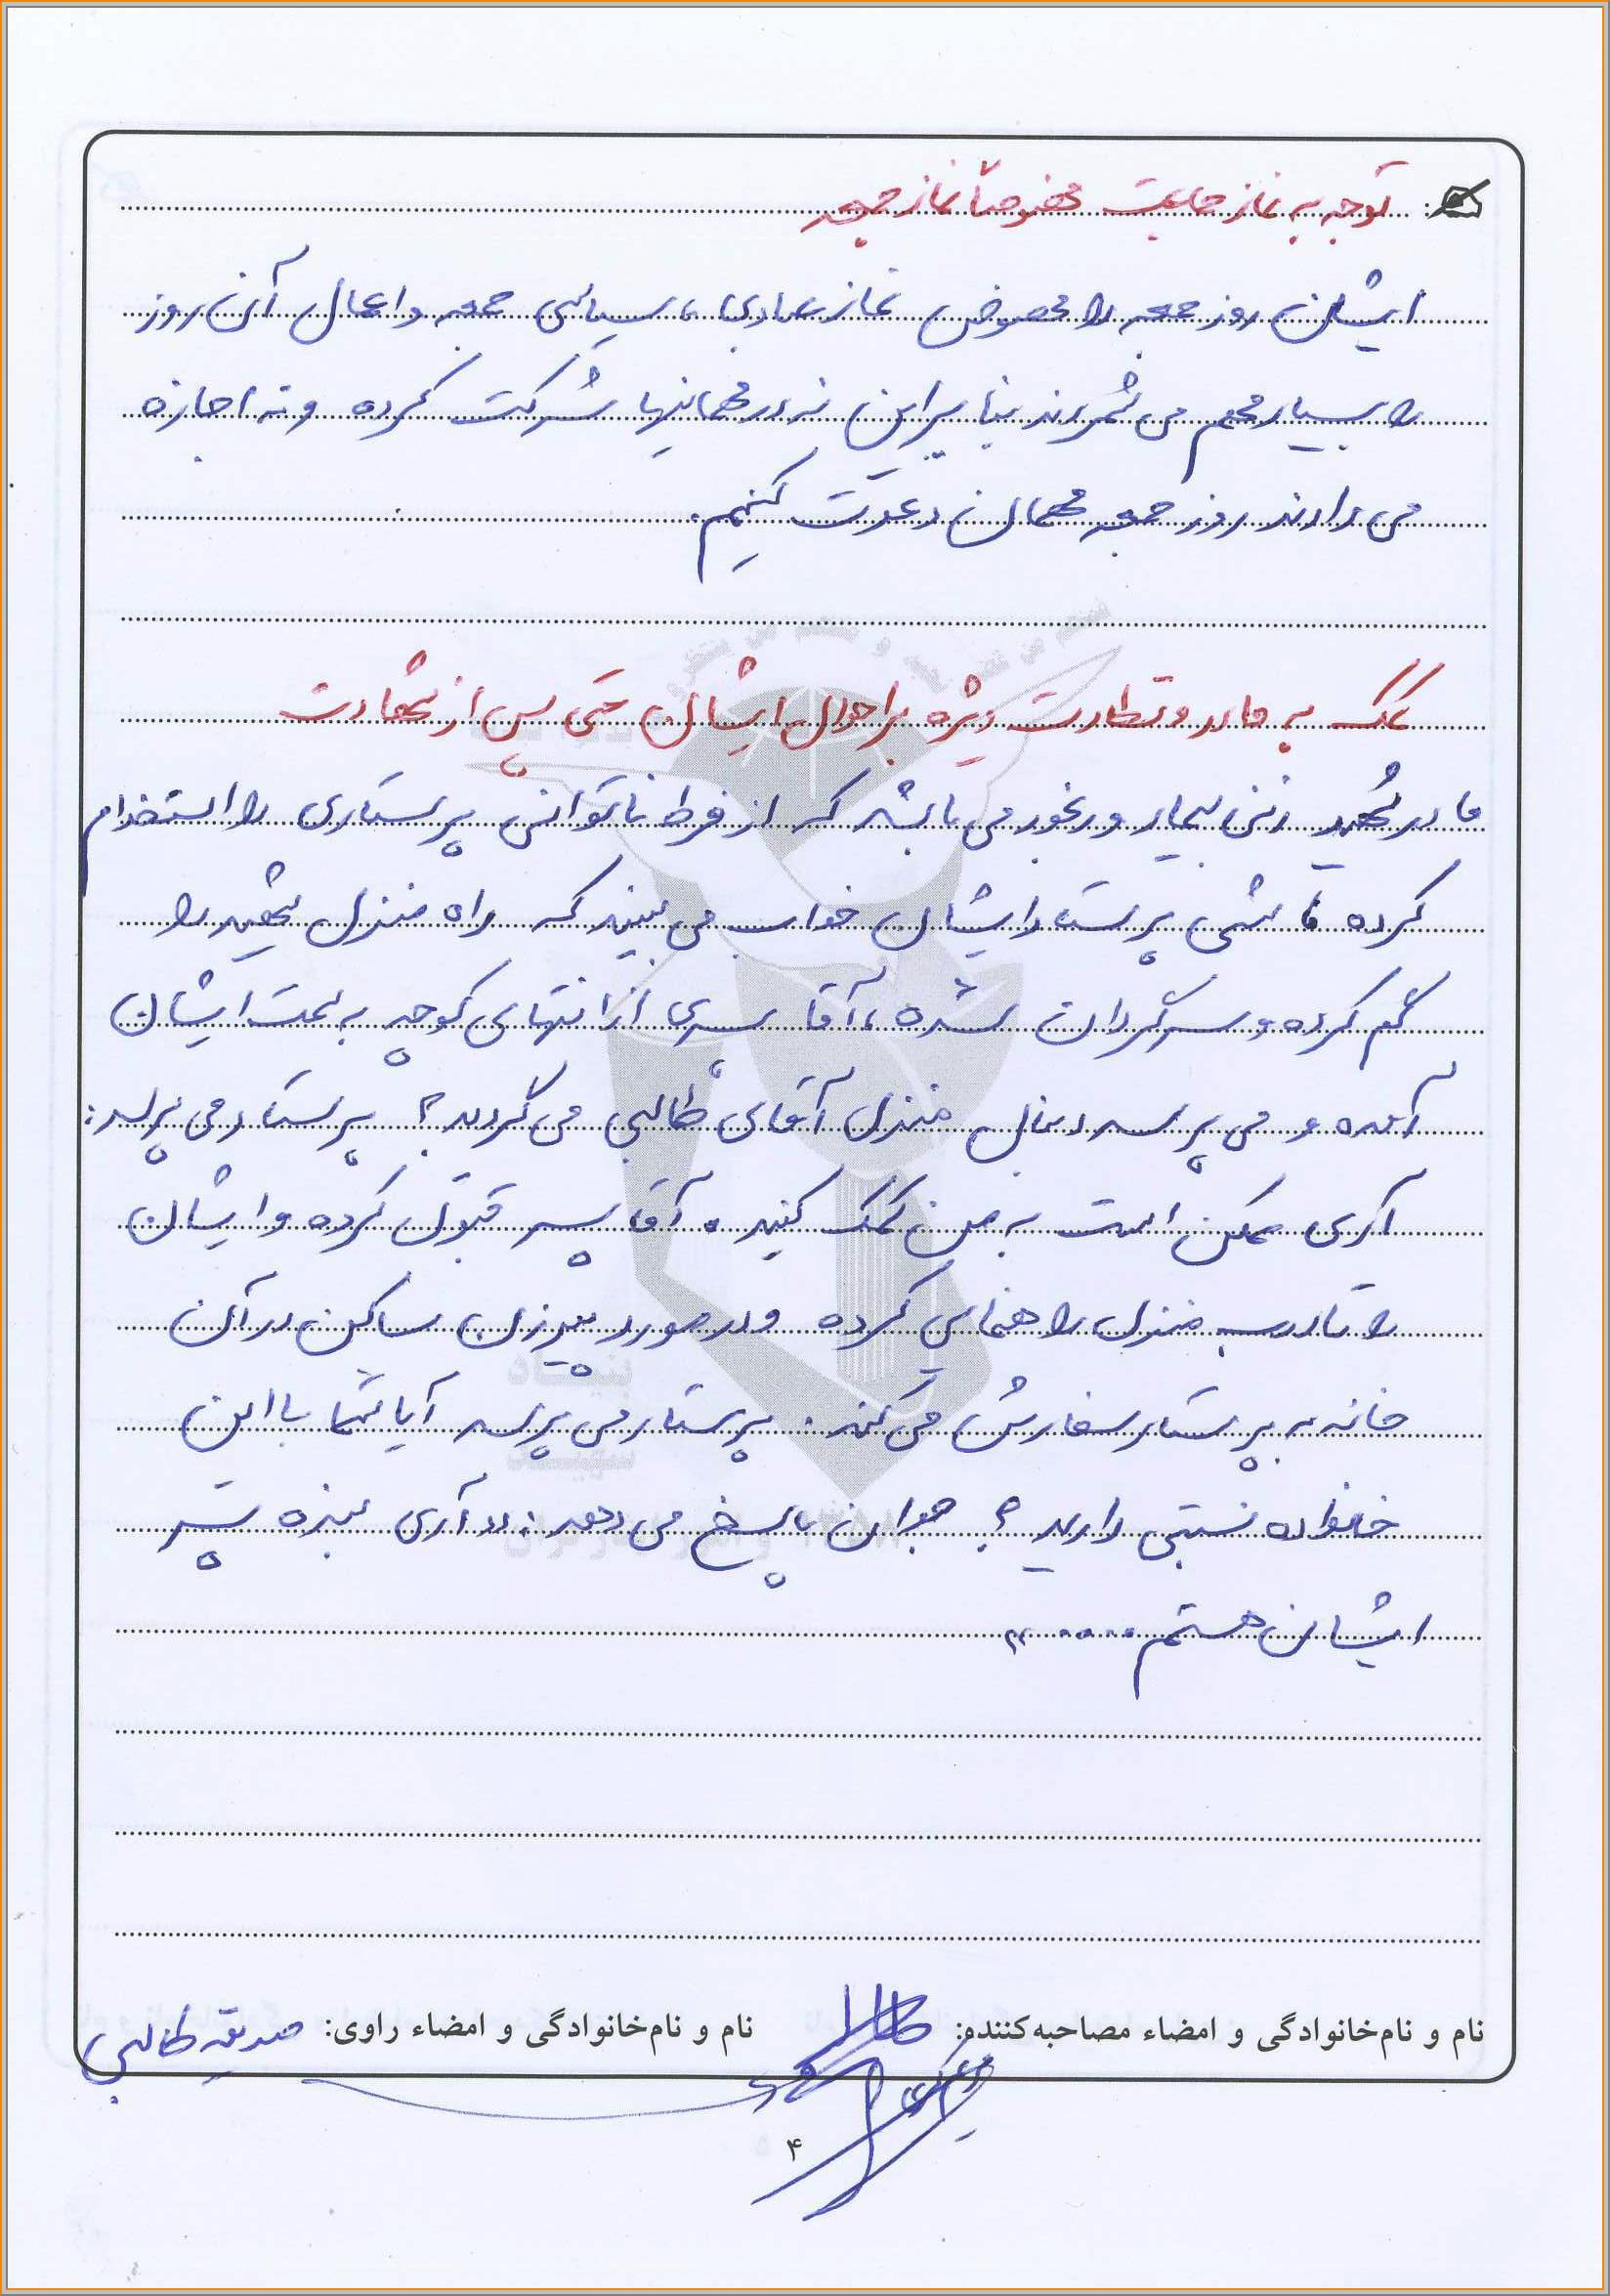 توجه به نماز جماعت مخصوصاً نماز جمعه
ایشان روز جمعه را مخصوص نماز عبادی، سیاسی جمعه و اعمال آن روز
را بسیار مهم می شمردند بنابراین نه در مهمانیها شرکت کرده و نه اجازه
می دادند روز جمعه مهمان دعوت کنیم.
کمک به مادر و نظارت ویژه بر احوال ایشان حتی پس از شهادت
مادر شهید زنی بیمار و رنجور می باشد که از فرط ناتوانی پرستاری را استخدام
کرده، شبی پرستار ایشان خواب می بیند که راه منزل شهید را
گم کرده و سرگردان شده، آقا پسری از انتهای کوچه به سمت ایشان
آمده و می پرسد دنبال منزل آقای طالبی می گردید؟ پرستار می پرسد:
آری ممکن است به من کمک کنید. آقا پسر قبول کرده و ایشان
را تا درب منزل راهنمایی کرده و در مورد پیرزن ساکن در آن
خانه به پرستار سفارش می کند. پرستار می پرسد آیا شما با این
خانواده نسبتی دارید؟ جوان پاسخ می دهد: «آری بنده پسر
ایشان هستم.....»
نام و نام‌خانوادگی و امضاء مصاحبه‌کننده:
نام و نام‌خانوادگی و امضاء راوی: صدیقه طالبی
۴